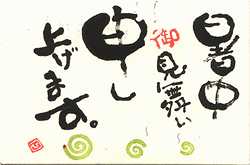 暑中
御見舞い
申し
上げます。